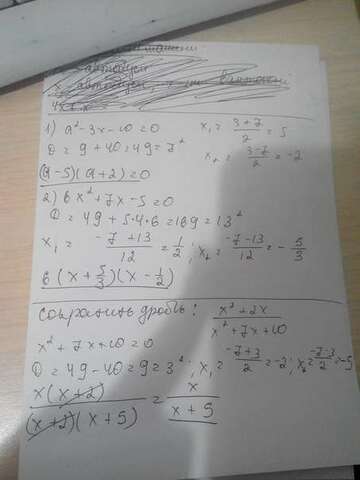 1) a² - 3x - 10 = 0 x₁ = \frac{3+7}{2} = 5
D = 9 + 40 = 49 = 7² x₂ = \frac{3-7}{2} = -2
(a-5)(a+2) = 0
2) 6x² + 7x - 5 = 0
D = 49 + 5·4·6 = 169 = 13²
x₁ = \frac{-7+13}{12} = \frac{1}{2}; x₂ = \frac{-7-13}{12} = -\frac{5}{3}
6(x + \frac{5}{3})(x - \frac{1}{2})
Сократить дробь: \frac{x² + 2x}{x² + 7x + 10}
x² + 7x + 10 = 0
D = 49 - 40 = 9 = 3²; x₁ = \frac{-7+3}{2} = -2; x₂ = \frac{-7-3}{2} = -5
\frac{x(x+2)}{(x+2)(x+5)} = \frac{x}{x+5}